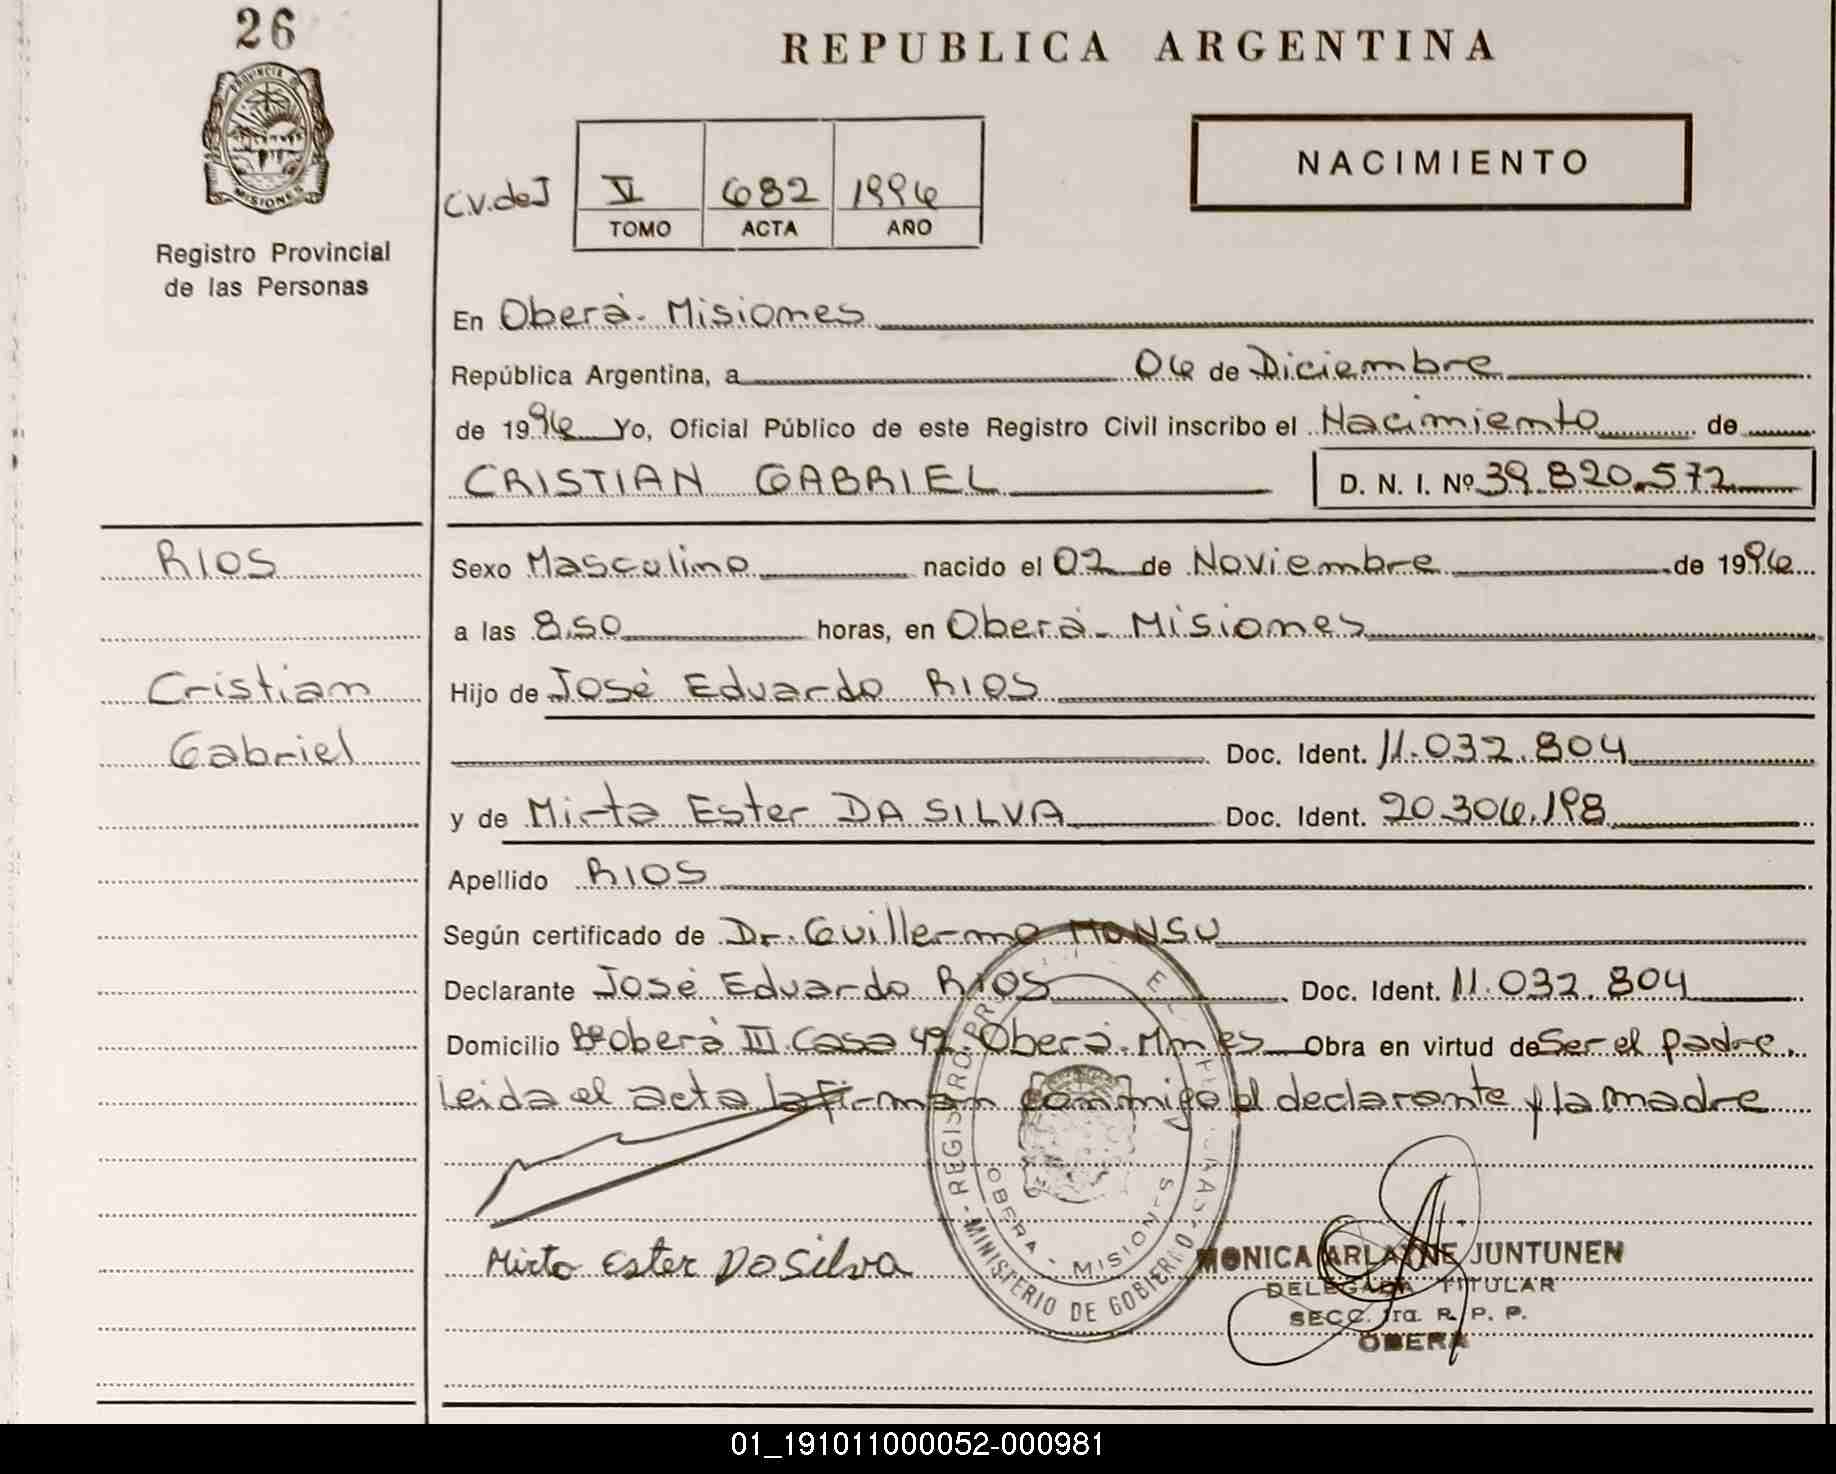 26
REPUBLICA ARGENTINA
PROVINCIA D
MISIONES
Registro Provincial
de las Personas
C.V. de J
V 682 1996
TOMO ACTA AÑO
NACIMIENTO
En Oberá - Misiones
República Argentina, a 06 de Diciembre
de 1996 Yo, Oficial Público de este Registro Civil inscribo el Nacimiento de
CRISTIAN GABRIEL D. N. I. Nº 39.820.572
RIOS
Sexo Masculino nacido el 02 de Noviembre de 1996
a las 8.50 horas, en Oberá - Misiones
Cristian
Hijo de José Eduardo RIOS
Gabriel
Doc. Ident. 11.032.804
y de Mirta Ester DA SILVA Doc. Ident. 20.306.198
Apellido RIOS
Según certificado de Dr. Guillermo MONSU
Declarante José Eduardo RIOS Doc. Ident. 11.032.804
Domicilio Bº Oberá III Casa 42. Oberá - Mnes Obra en virtud de Ser el padre.
Leida el acta la firman conmigo el declarante y la madre
REGISTRO PR
MINISTERIO DE GOBIERNO
OBERA - MISIONES
Mirta Ester Da Silva
MONICA ARLAYNE JUNTUNEN
DELEGADA TITULAR
SECC. 1ra. R. P. P.
OBERA
01_191011000052-000981